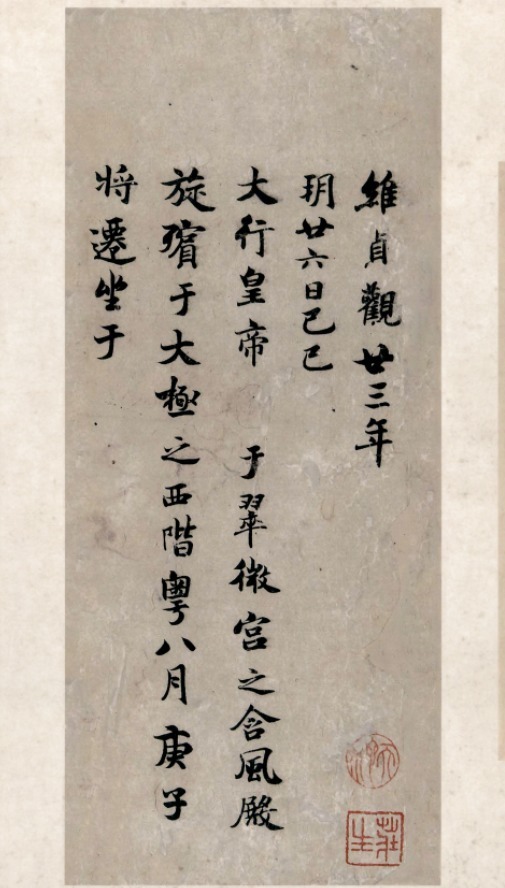 維貞觀廿三年
玥廿六日己巳
大行皇帝 于翠微宫之含風殿
旋殯于大極之西階粵八月庚子
将遷坐于
莊生